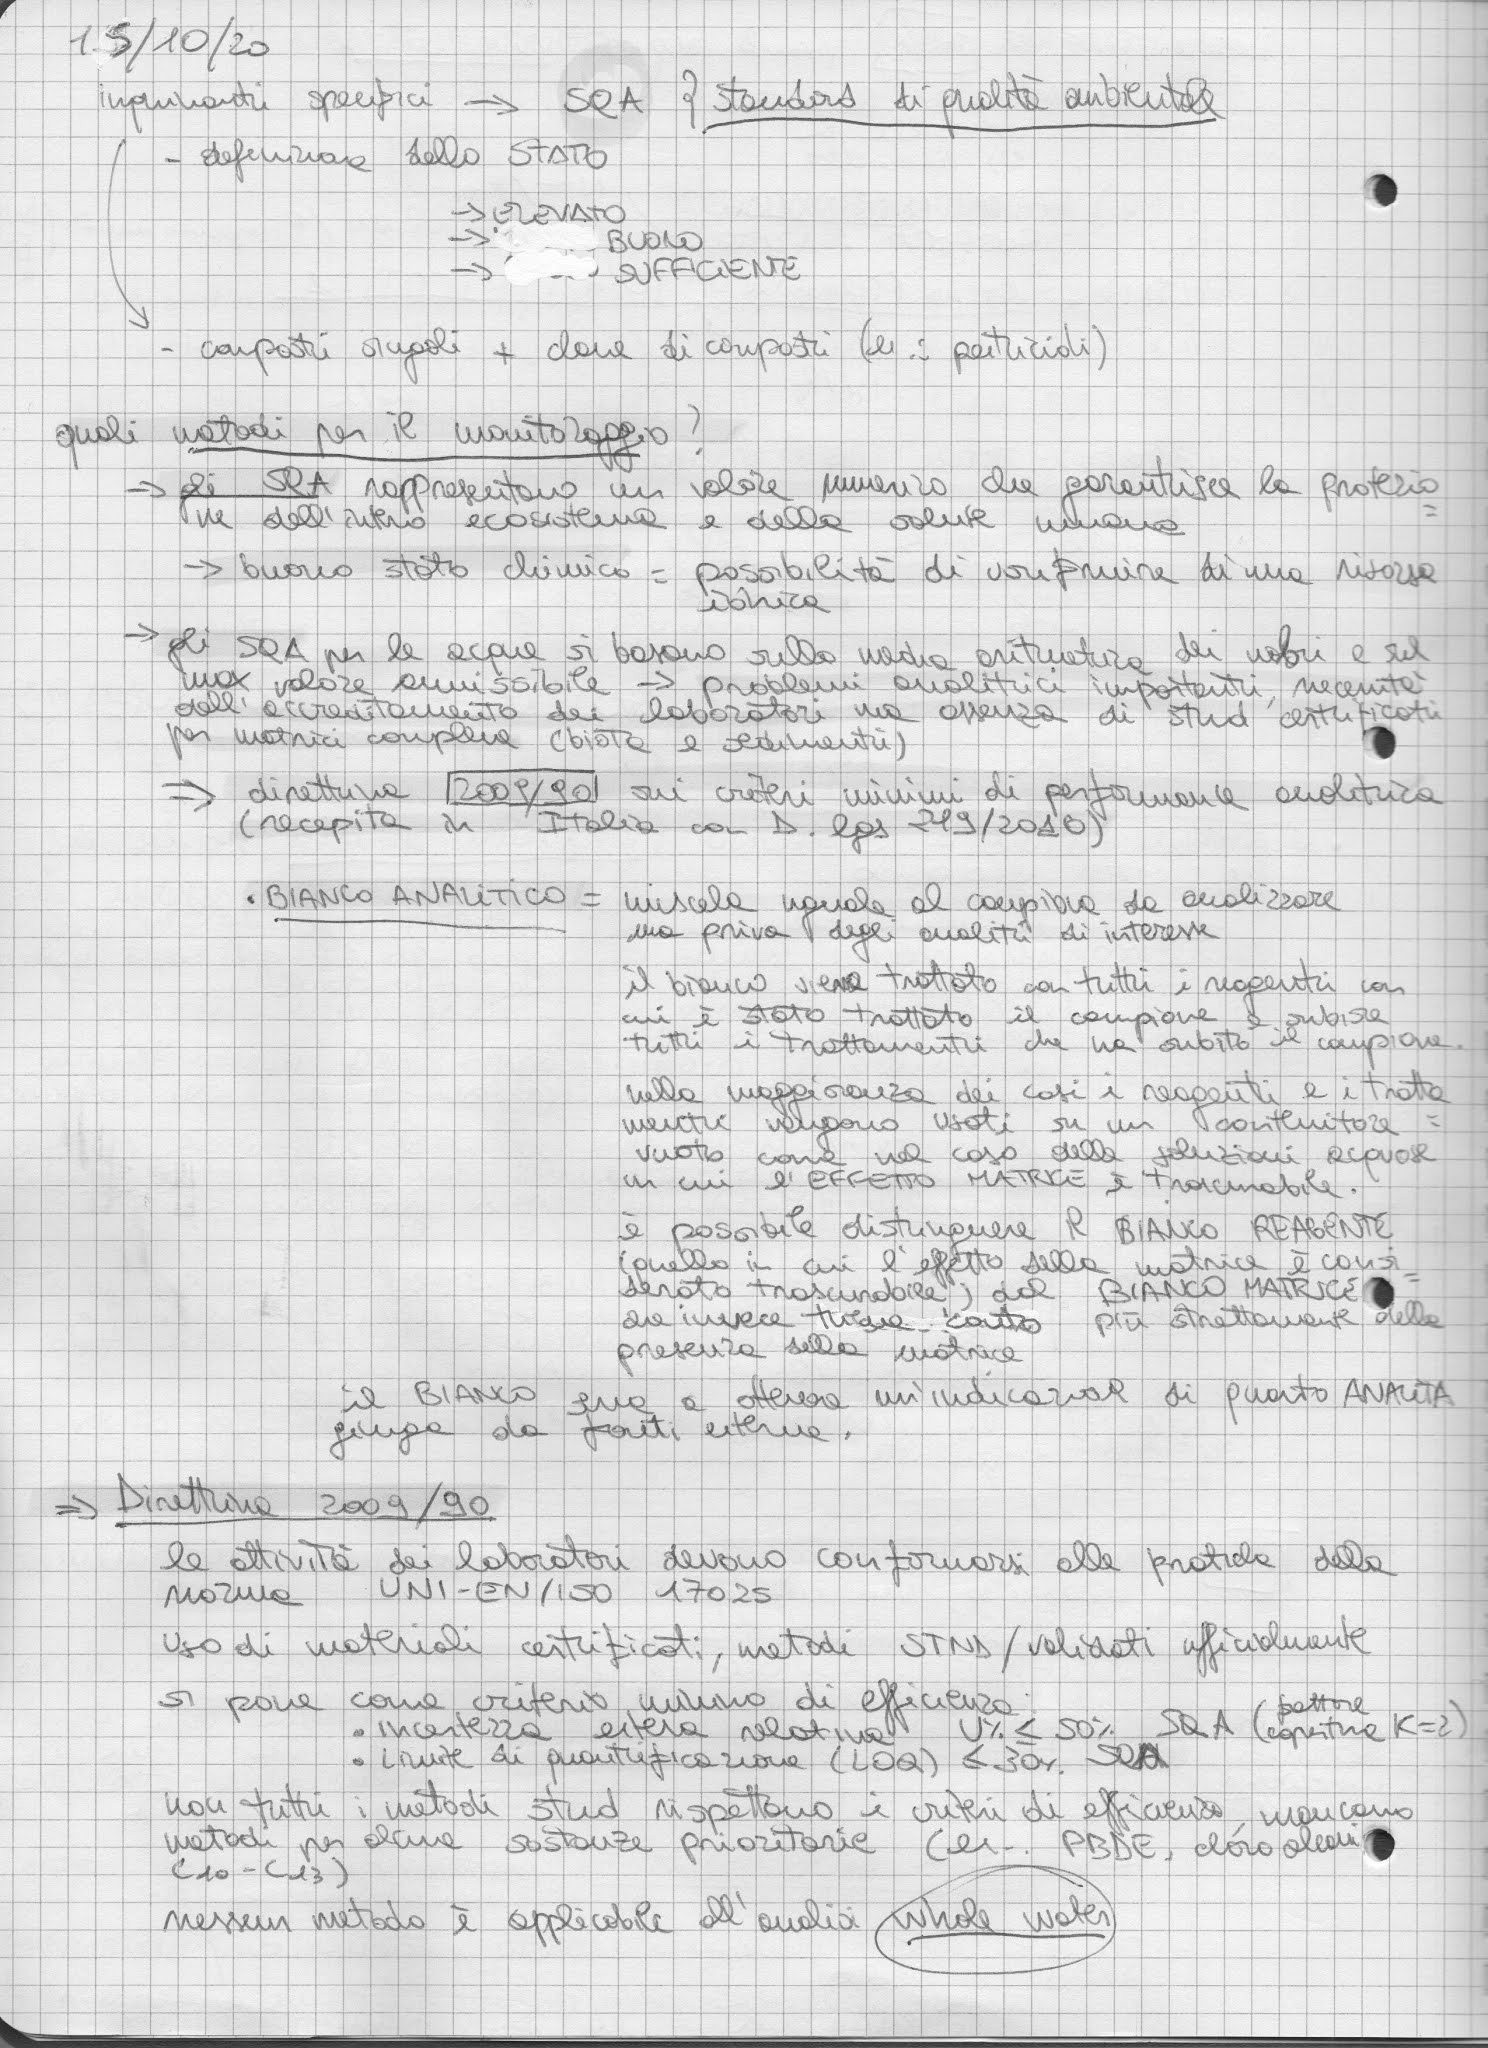 15/10/20
inquinanti specifici → SQA } standard di qualità ambientale
- definizione dello STATO
→ ELEVATO
→ BUONO
→ SUFFICIENTE
- composti singoli + classe di composti (es.: pesticidi)
quali metodi per il monitoraggio?
→ gli SQA rappresentano un valore numerico che garantisce la protezio=
ne dell'intero ecosistema e della salute umana
→ buono stato chimico = possibilità di usufruire di una risorsa
idrica
→ gli SQA per le acque si basano sulla media aritmetica dei valori e sul
max valore ammissibile → problemi analitici importanti, necessità
dell'accreditamento dei laboratori ma assenza di stnd certificati
per matrici complesse (biota e sedimenti)
⇒ direttiva 2009/90 sui criteri minimi di performance analitica
(recepita in Italia con D. lgs 219/2010)
• BIANCO ANALITICO = miscela uguale al campione da analizzare
ma priva degli analiti di interesse
il bianco viene trattato con tutti i reagenti con
cui è stato trattato il campione e subisce
tutti i trattamenti che ha subito il campione.
nella maggioranza dei casi i reagenti e i tratta
menti vengono usati su un contenitore =
vuoto come nel caso delle soluzioni acquose
in cui l'EFFETTO MATRICE è trascurabile.
è possibile distinguere il BIANCO REAGENTE
(quello in cui l'effetto della matrice è consi=
derato trascurabile) dal BIANCO MATRICE
che invece tiene conto più strettamente della
presenza della matrice
il BIANCO serve a ottenere un'indicazione di quanto ANALITA
giunga da fonti esterne.
⇒ Direttiva 2009/90
le attività dei laboratori devono conformarsi alle pratiche della
norma UNI-EN/ISO 17025
uso di materiali certificati, metodi STND/validati ufficialmente
si pone come criterio minimo di efficienza:
• incertezza estesa relativa U% ≤ 50% SQA (fattore
copertura K=2)
• Limite di quantificazione (LOQ) ≤ 30% SQA
non tutti i metodi stnd rispettano i criteri di efficienza, mancano
metodi per alcune sostanze prioritarie (es.. PBDE, cloro alcani
C10-C13)
nessun metodo è applicabile all'analisi whole water